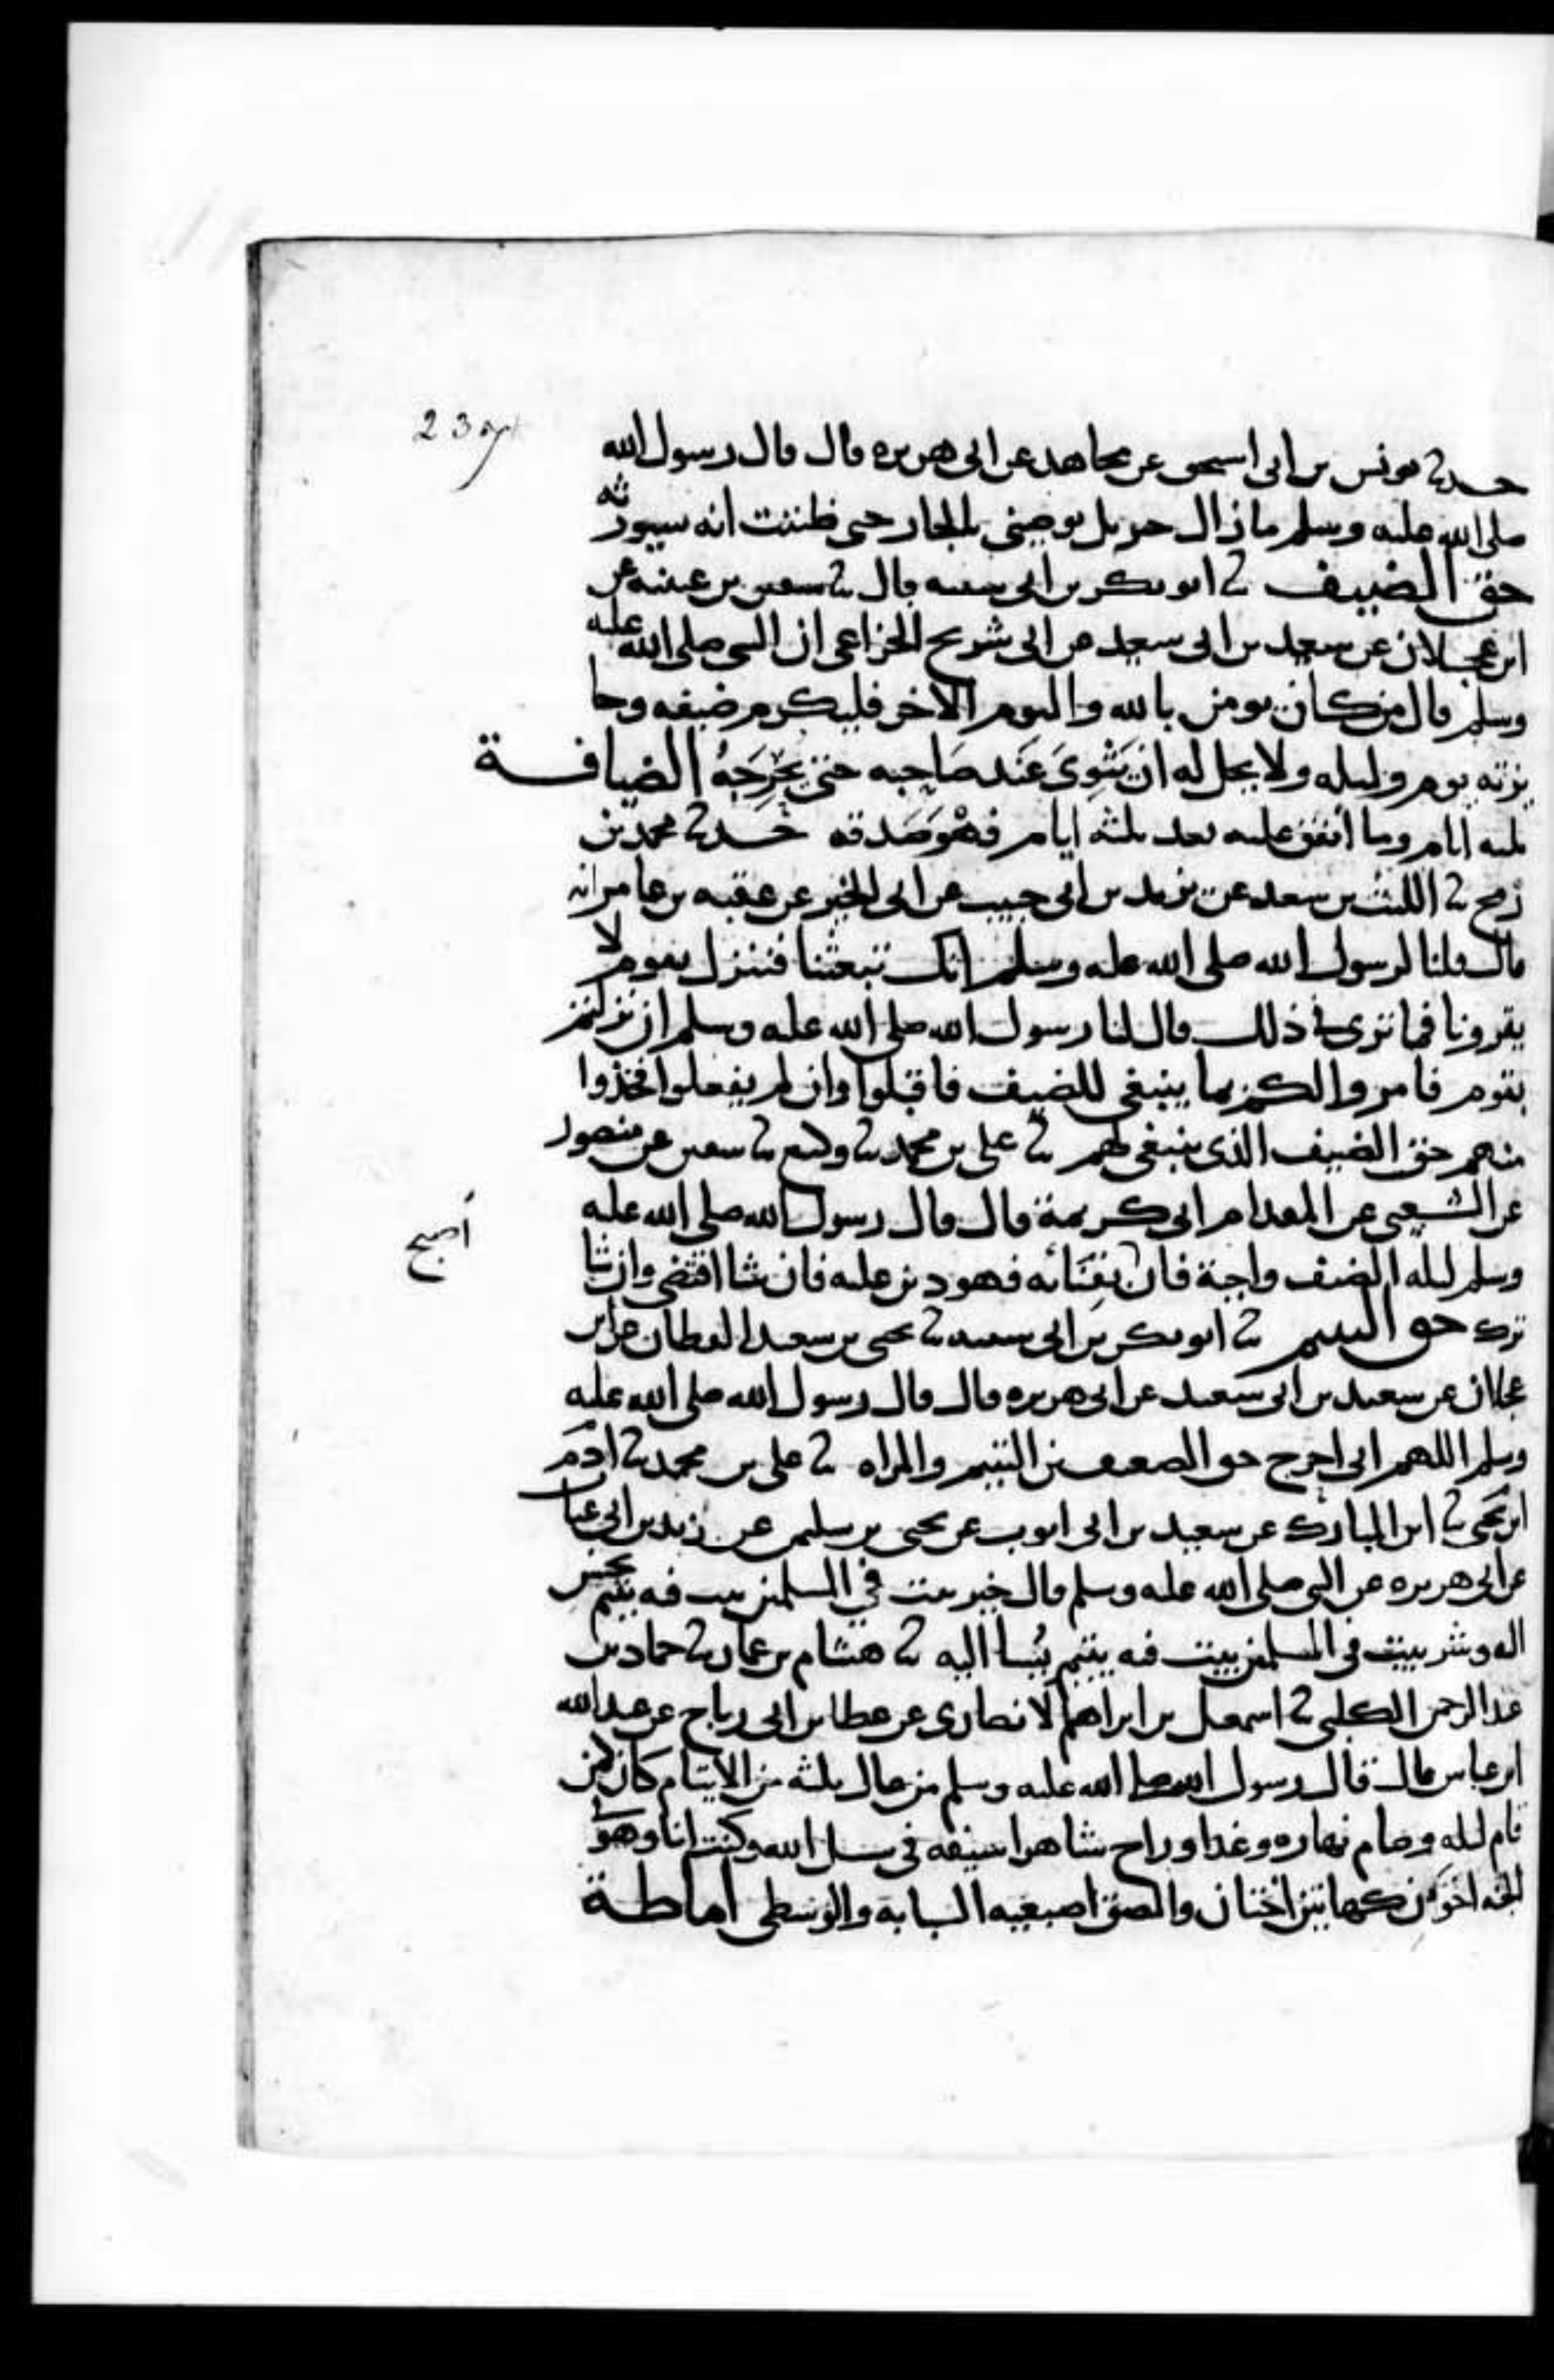 حدثنا يونس بن ابى اسحق عن مجاهد عن ابى هريره قال قال رسول الله
صلى الله عليه وسلم ما زال جبريل يوصينى بالجار حتى ظننت انه سيورثه
حق الضيف ثنا ابو بكر بن ابى شيبه قال ثنا سفين بن عيينه عن
ابن عجلان عن سعيد بن ابى سعيد عن ابى شريح الخزاعى ان النبى صلى الله عليه
وسلم قال من كان يومن بالله واليوم الاخر فليكرم ضيفه وجا
يزته يوم وليله ولا يحل له ان يَثْوِىَ عَند صَاحِبه حتى يُحْرِجَهُ الضيافة
ثلثه ايام وما أنفق عليه بعد ثلثه ايام فهْوَ صَدقه حدثنا محمد بن
رمح ثنا الليث بن سعد عن يزيد بن ابى حبيب عن ابى الخير عن عقبه بن عامر انه
قال قلنا لرسول الله صلى الله عليه وسلم انك تبعثنا فننزل بقوم لا
يقرونا فما ترى فى ذلك قال لنا رسول الله صلى الله عليه وسلم ان نزلتم
بقوم فامروا لكم بما ينبغى للضيف فاقبلوا وان لم يفعلوا فخذوا
منهم حق الضيف الذى ينبغى لهم ثنا على بن محمد ثنا وكيع ثنا سفين عن منصور
عن الشعبى عن المقدام ابى كريمة قال قال رسول الله صلى الله عليه
وسلم ليله الضيف واجبة فان بفنائه فهو دين عليه فان شا اقتضى وان شا
أصبح
ترك حق اليتيم ثنا ابو بكر بن ابى شيبه ثنا يحيى بن سعيد القطان عن ابن
عجلان عن سعيد بن ابى سعيد عن ابى هريره قال قال رسول الله صلى الله عليه
وسلم اللهم انى احرج حق الضعيفين اليتيم والمراه ثنا على بن محمد ثنا ادم
ابن يحيى ثنا ابن المبارك عن سعيد بن ابى ايوب عن يحيى بن سليمن عن زيد بن ابى عتاب
عن ابى هريره عن النبى صلى الله عليه وسلم قال خير بيت فى المسلمين بيت فيه يتيم يحسن
اليه وشر بيت فى المسلمين بيت فيه يتيم يُسا اليه ثنا هشام بن عمار ثنا حماد بن
عبد الرحمن الكلبى ثنا اسمعيل بن ابراهيم الانصارى عن عطا بن ابى رباح عن عبد الله
ابن عباس قال قال رسول الله صلى الله عليه وسلم من عال ثلثه من الايتام كان كمن
قام ليله وصام نهاره وغدا وراح شاهرا سيفه فى سبيل الله وكنت انا وهو فى
الجنه اخوين كهاتين اختان والصق اصبعيه السبابة والوسطى اماطة